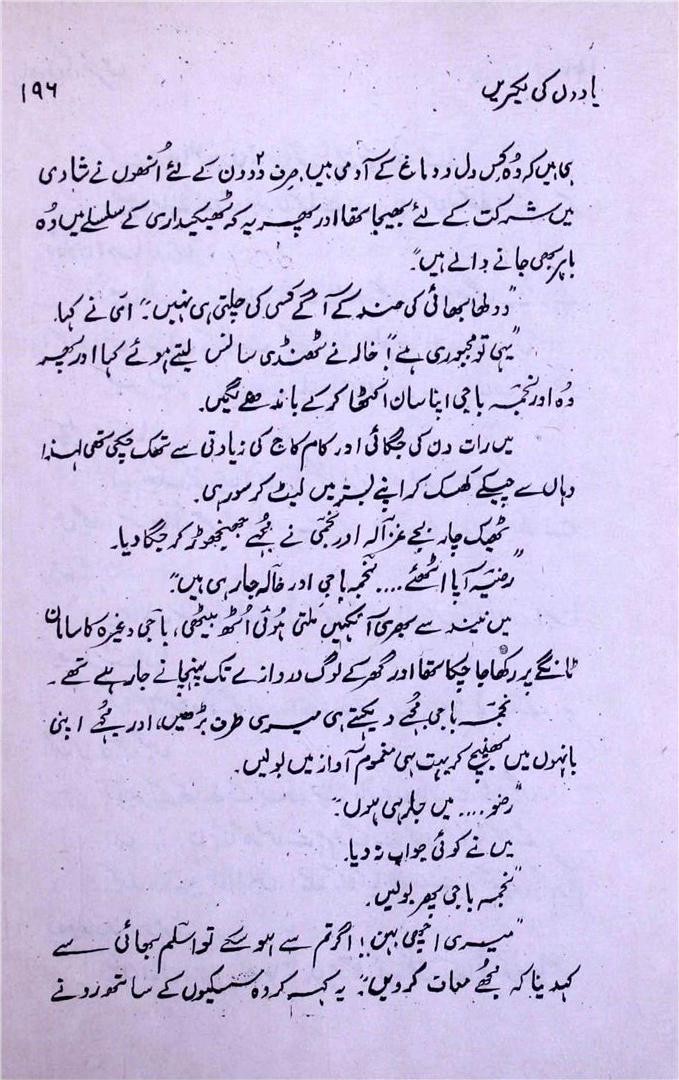 یادوں کی لکیریں ۱۹۶
ہی ہیں کہ وہ کس دل و دماغ کے آدمی ہیں، صرف ۲ دو دن کے لئے اُنھوں نے شادی
میں شرکت کے لئے بھیجا تھا اور پھر یہ کہ ٹھیکیداری کے سلسلے میں وہ
باہر بھی جانے والے ہیں"۔
"دولھا بھائی کی ضد کے آگے کسی کی چلتی ہی نہیں"۔ امّی نے کہا۔
"یہی تو مجبوری ہے"! خالہ نے ٹھنڈی سانس لیتے ہوئے کہا اور پھر
وہ اور نجمہ باجی اپنا سامان اکٹھا کر کے باندھنے لگیں۔
میں رات دن کی جگائی اور کام کاج کی زیادتی سے تھک چکی تھی لہٰذا
وہاں سے چپکے کھسک کر اپنے بستر میں لیٹ کر سو رہی۔
ٹھیک چار بجے غزالہ اور نجمی نے مجھے جھنجھوڑ کر جگا دیا۔
"رضیہ آپا اٹھئے .... نجمہ باجی اور خالہ جا رہی ہیں"۔
میں نیند سے بھری آنکھیں ملتی ہوئی اُٹھ بیٹھی، باجی وغیرہ کا سامان
ٹانگے پر رکھا جا چکا تھا اور گھر کے لوگ دروازے تک پہنچانے جا رہے تھے۔
نجمہ باجی مجھے دیکھتے ہی میری طرف بڑھیں، اور مجھے اپنی
بانہوں میں بھینچ کر بہت ہی مغموم آواز میں بولیں۔
"رضو .... میں جا رہی ہوں"۔
میں نے کوئی جواب نہ دیا۔
نجمہ باجی پھر بولیں۔
"میری اچھی بہن! اگر تم سے ہو سکے تو اسلم بھائی سے
کہہ دینا کہ مجھے معاف کر دیں"۔ یہ کہہ کر وہ سسکیوں کے ساتھ رونے